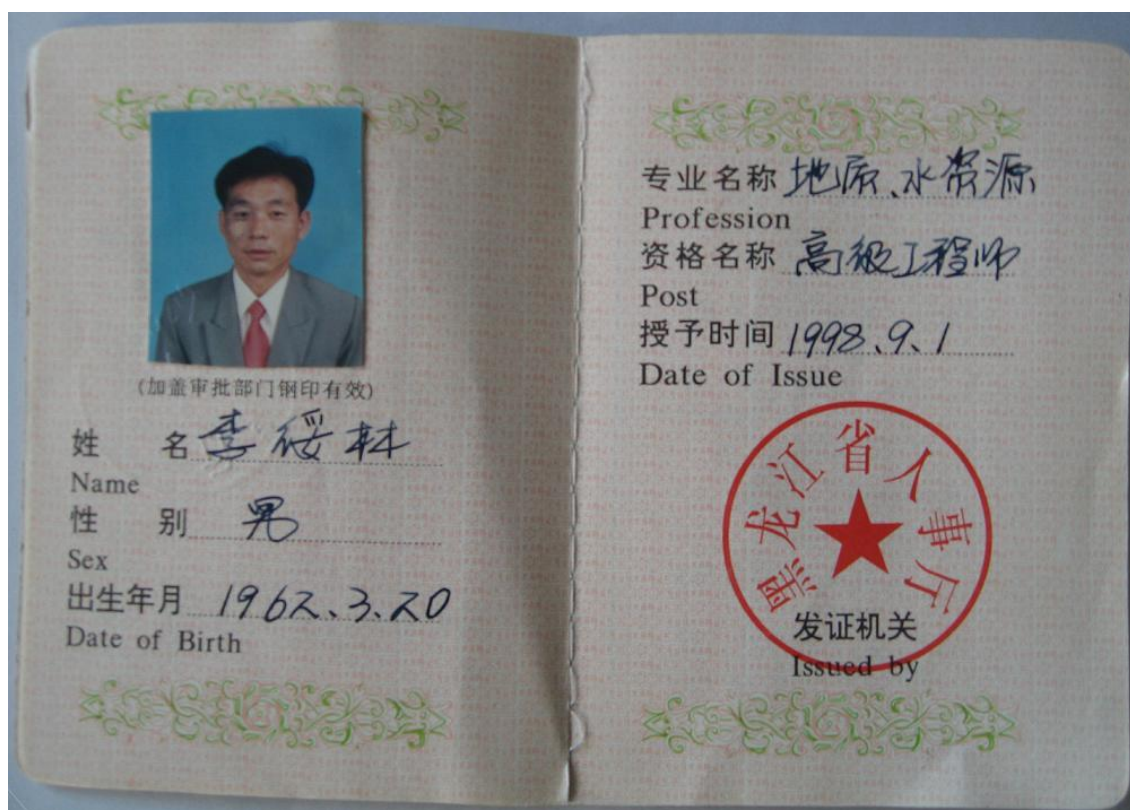 (加盖审批部门钢印有效)
姓 名 李绥林
Name
性 别 男
Sex
出生年月 1962.3.20
Date of Birth
专业名称 地质、水资源
Profession
资格名称 高级工程师
Post
授予时间 1998.9.1
Date of Issue
黑龙江省人事厅
发证机关
Issued by